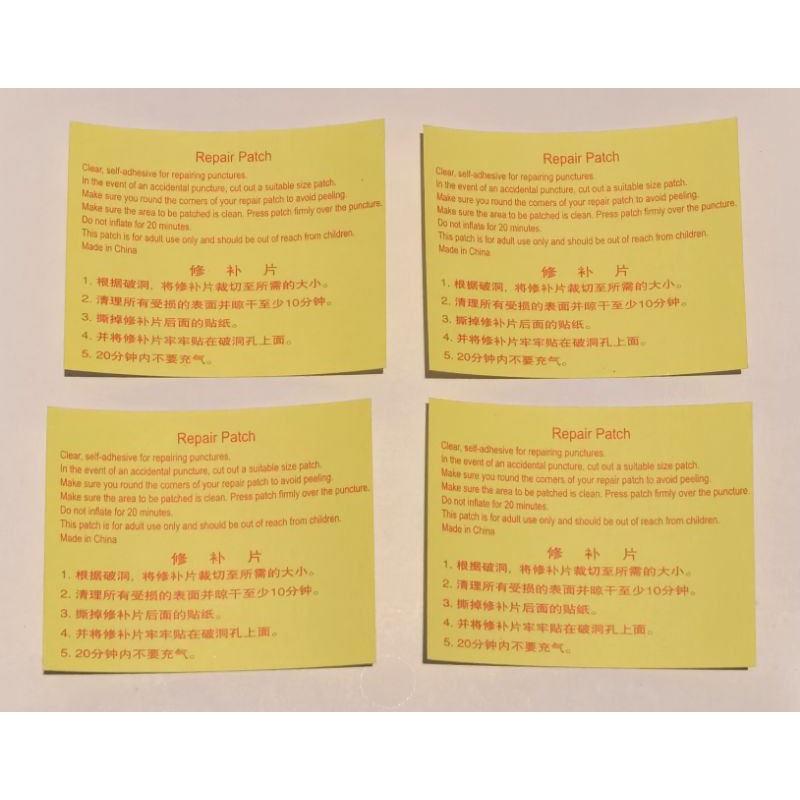 Repair Patch
Clear, self-adhesive for repairing punctures.
In the event of an accidental puncture, cut out a suitable size patch.
Make sure you round the corners of your repair patch to avoid peeling.
Make sure the area to be patched is clean. Press patch firmly over the puncture.
Do not inflate for 20 minutes.
This patch is for adult use only and should be out of reach from children.
Made in China
修 补 片
1. 根据破洞，将修补片裁切至所需的大小。
2. 清理所有受损的表面并晾干至少10分钟。
3. 撕掉修补片后面的贴纸。
4. 并将修补片牢牢贴在破洞孔上面。
5. 20分钟内不要充气。
Repair Patch
Clear, self-adhesive for repairing punctures.
In the event of an accidental puncture, cut out a suitable size patch.
Make sure you round the corners of your repair patch to avoid peeling.
Make sure the area to be patched is clean. Press patch firmly over the puncture.
Do not inflate for 20 minutes.
This patch is for adult use only and should be out of reach from children.
Made in China
修 补 片
1. 根据破洞，将修补片裁切至所需的大小。
2. 清理所有受损的表面并晾干至少10分钟。
3. 撕掉修补片后面的贴纸。
4. 并将修补片牢牢贴在破洞孔上面。
5. 20分钟内不要充气。
Repair Patch
Clear, self-adhesive for repairing punctures.
In the event of an accidental puncture, cut out a suitable size patch.
Make sure you round the corners of your repair patch to avoid peeling.
Make sure the area to be patched is clean. Press patch firmly over the puncture.
Do not inflate for 20 minutes.
This patch is for adult use only and should be out of reach from children.
Made in China
修 补 片
1. 根据破洞，将修补片裁切至所需的大小。
2. 清理所有受损的表面并晾干至少10分钟。
3. 撕掉修补片后面的贴纸。
4. 并将修补片牢牢贴在破洞孔上面。
5. 20分钟内不要充气。
Repair Patch
Clear, self-adhesive for repairing punctures.
In the event of an accidental puncture, cut out a suitable size patch.
Make sure you round the corners of your repair patch to avoid peeling.
Make sure the area to be patched is clean. Press patch firmly over the puncture.
Do not inflate for 20 minutes.
This patch is for adult use only and should be out of reach from children.
Made in China
修 补 片
1. 根据破洞，将修补片裁切至所需的大小。
2. 清理所有受损的表面并晾干至少10分钟。
3. 撕掉修补片后面的贴纸。
4. 并将修补片牢牢贴在破洞孔上面。
5. 20分钟内不要充气。